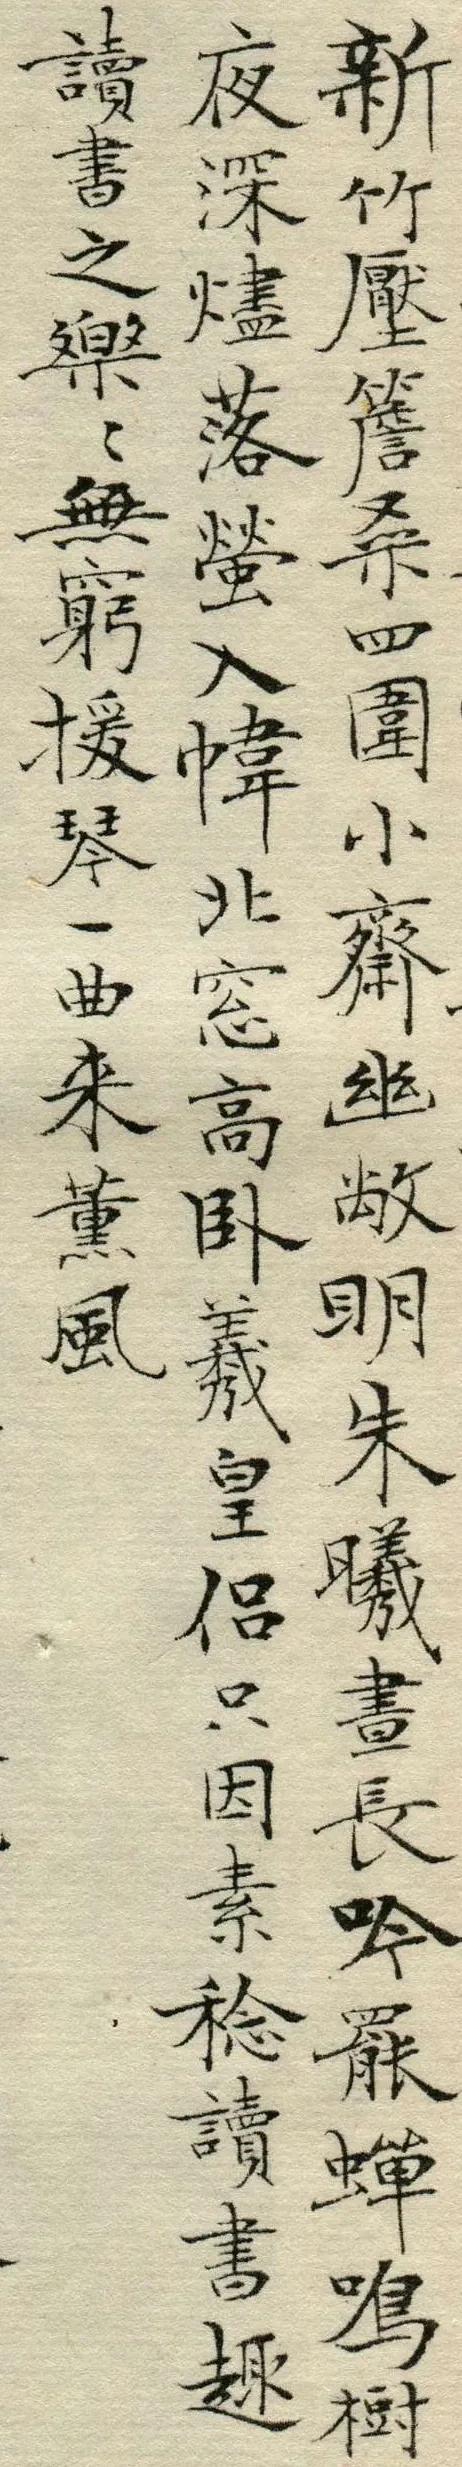 新竹壓簷桑四圍小齋幽敞明朱曦晝長吟罷蟬鳴樹
夜深燼落螢入幃北窓高卧羲皇侣只因素稔讀書趣
讀書之樂〻無窮援琴一曲来薰風